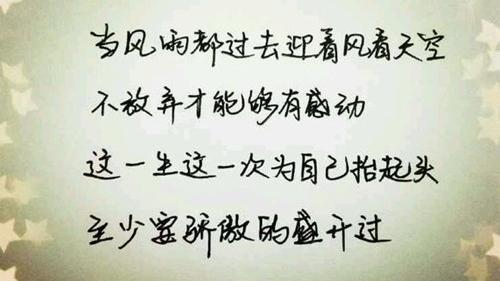 当风雨都过去迎着风看天空
不放弃才能够有感动
这一生这一次为自己抬起头
至少要骄傲的盛开过